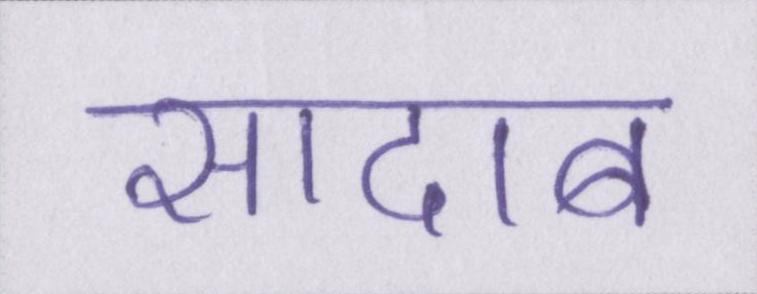 सादाब